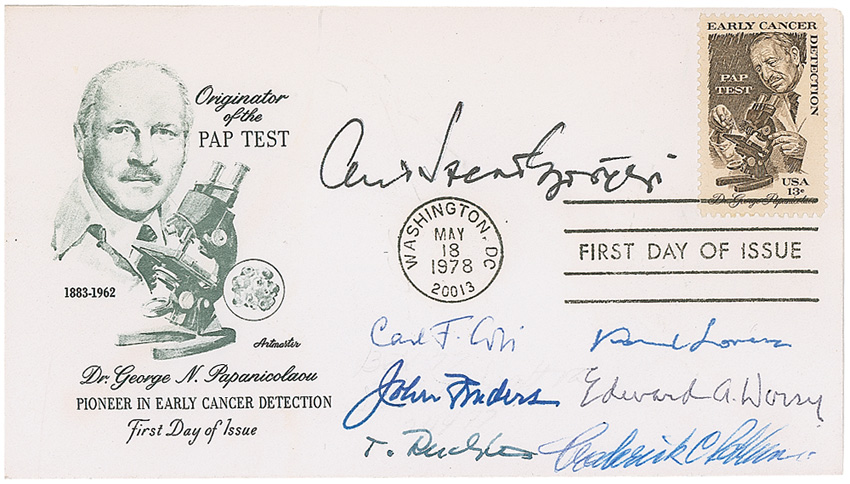 Originator
of the
PAP TEST
1883-1962
Artmaster
Dr. George N. Papanicolaou
PIONEER IN EARLY CANCER DETECTION
First Day of Issue
EARLY CANCER
DETECTION
PAP
TEST
USA
13c
Dr. George Papanicolaou
WASHINGTON, DC
MAY
18
1978
20013
FIRST DAY OF ISSUE
Carl F. Cori
John Enders
Edward A. Doisy
T.
Frederick C Robbins